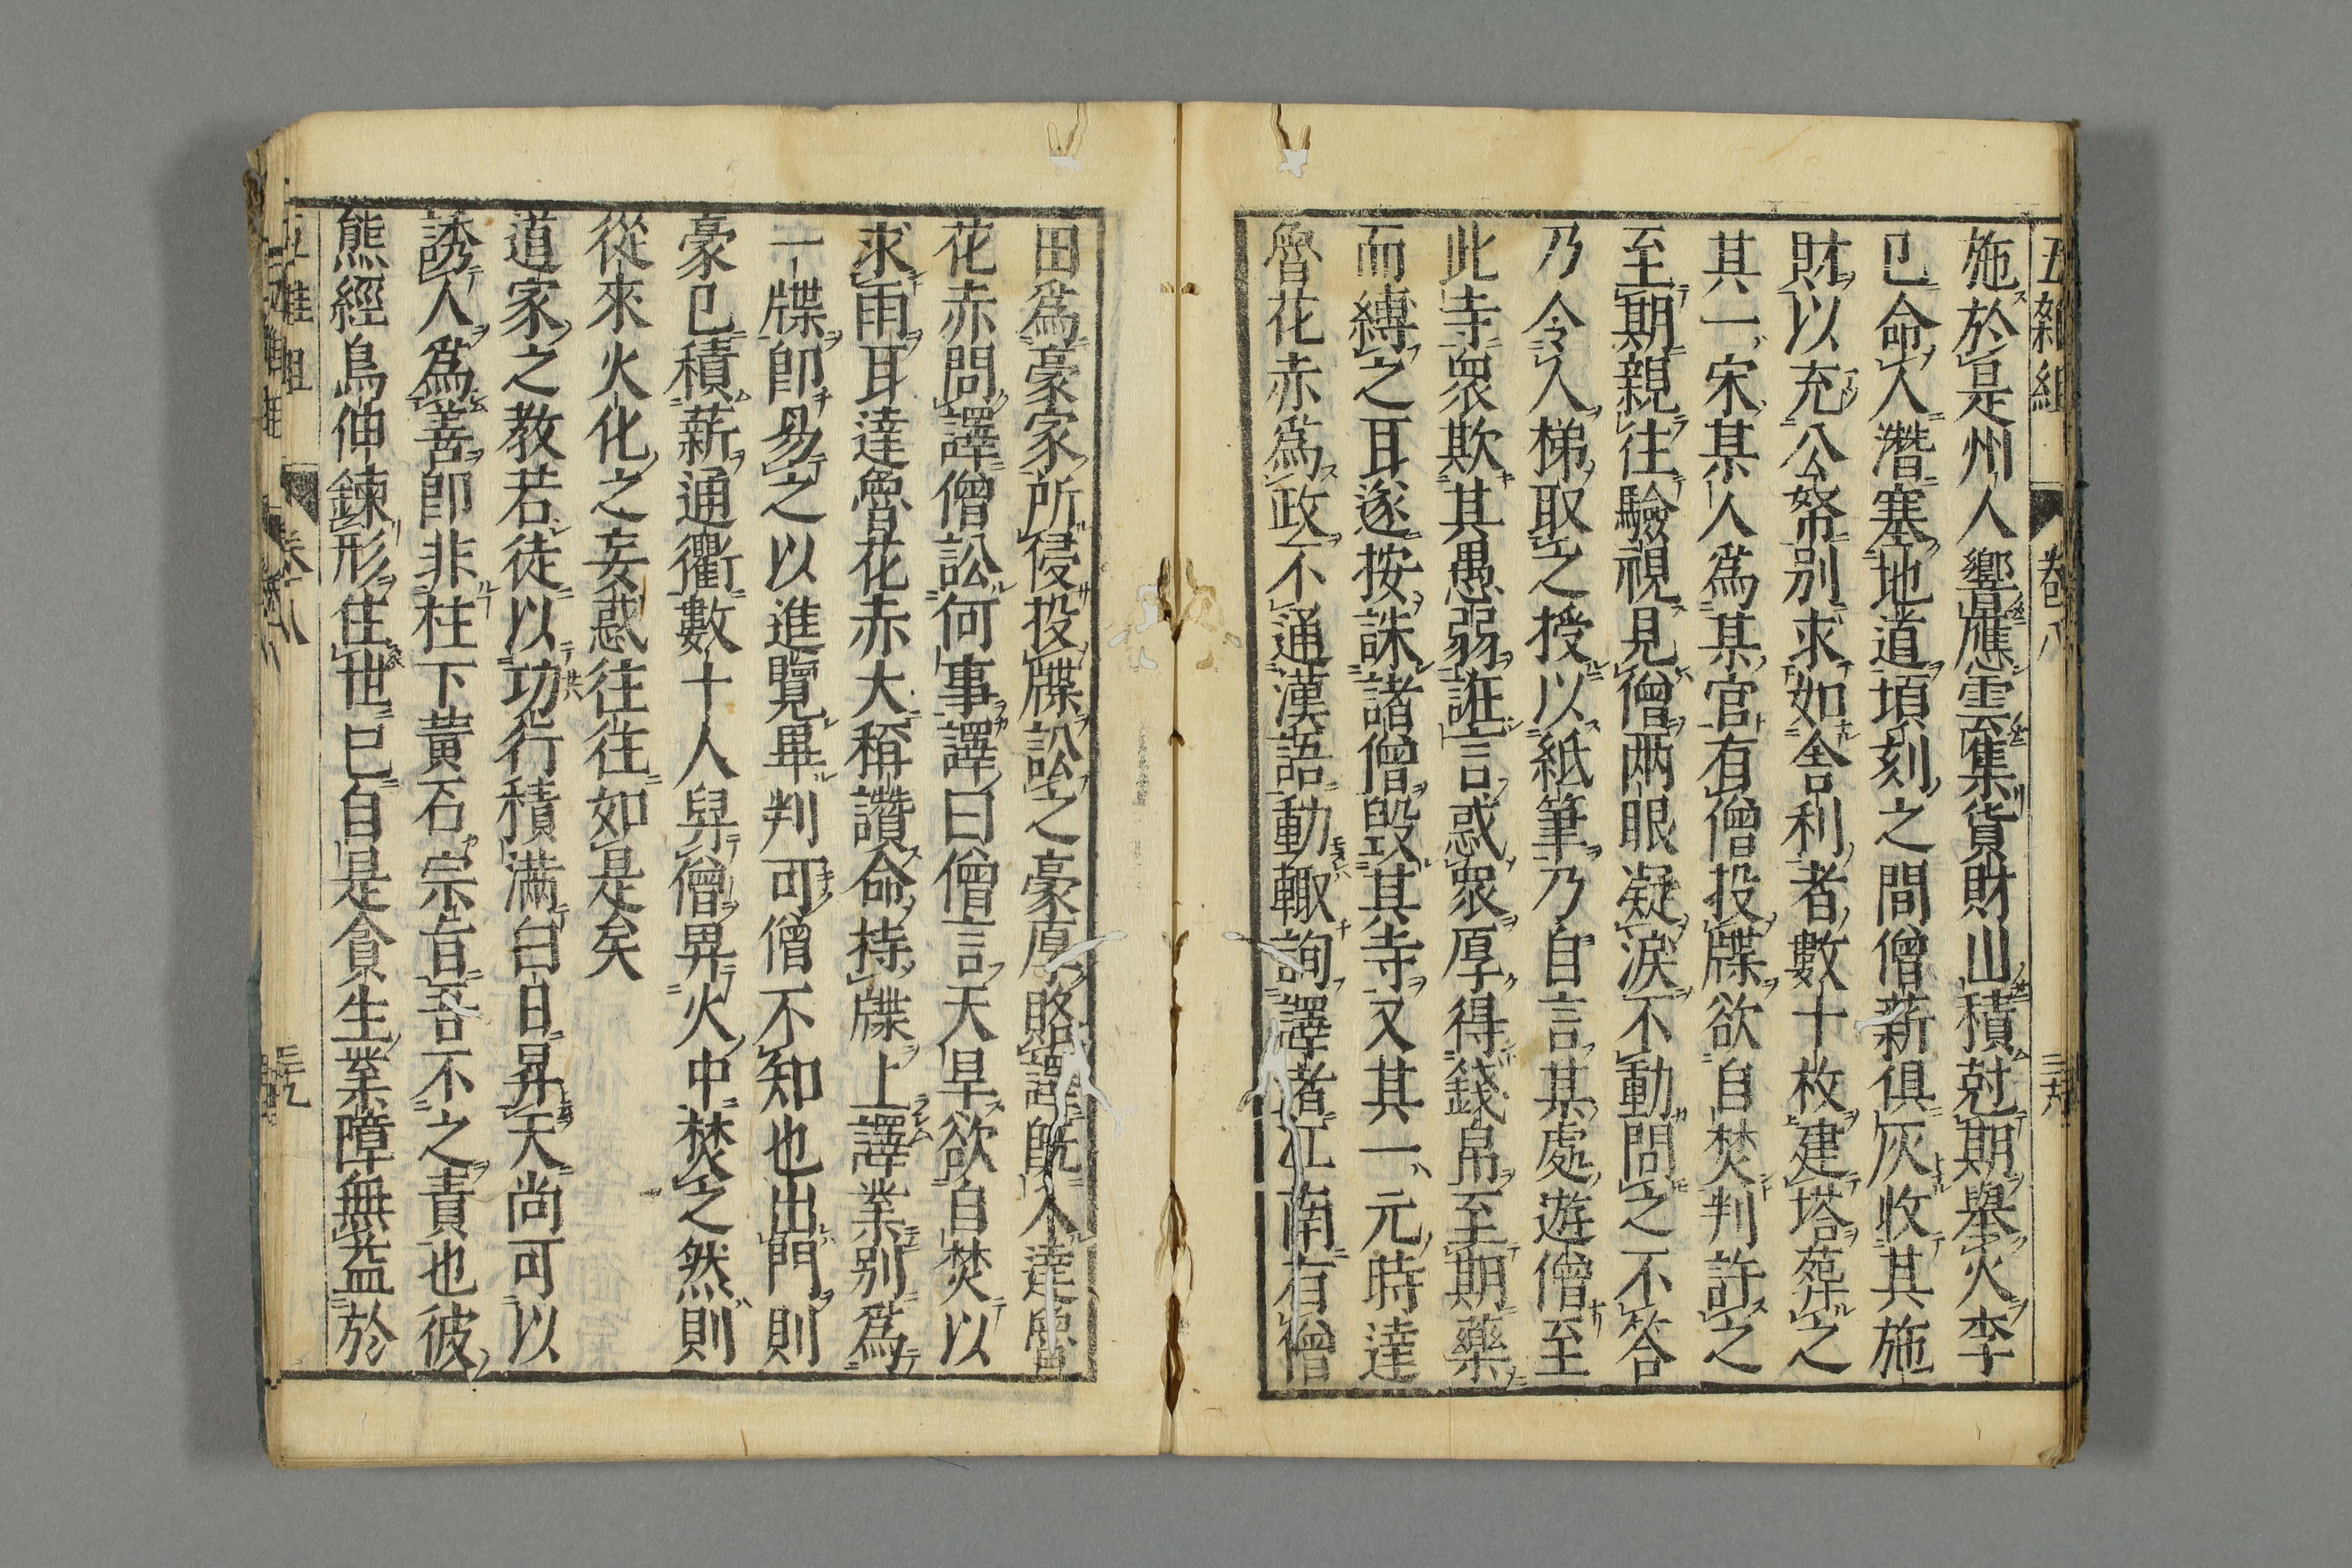 五雜組 卷八
施於是州人響應雲集貨財山積尅期舉火李
已命人潛塞地道頃刻之間僧薪俱灰收其施
財以充公帑別求如舍利者數十枚建塔葬之
其一宋某人為某官有僧投牒欲自焚判許之
至期親往驗視見僧兩眼凝淚不動問之不答
乃令人梯取之授以紙筆乃自言某處遊僧至
此寺衆欺其愚弱誑言惑衆厚得錢帛至期藥
而縛之耳遂按誅諸僧毀其寺又其一元時達
魯花赤為政不通漢語動輙詢譯者江南有僧
田為豪家所侵投牒訟之豪厚賂譯既入達魯
花赤問譯僧訟何事譯曰僧言天旱欲自焚以
求雨耳達魯花赤大稱讚命持牒上譯業別為
一牒即易之以進覽畢判可僧不知也出門則
豪已積薪通衢數十人舁僧畀火中焚之然則
從來火化之妄惑往往如是矣
道家之教若徒以功行積滿白日昇天尚可以
誘人為善即非柱下黃石宗旨吾不之責也彼
熊經鳥伸鍊形住世已自是貪生業障無益於